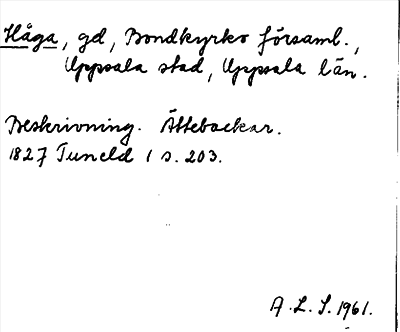 Håga, gd, Bondkyrko församl.,
Uppsala stad, Uppsala län.
Beskrivning. Ättebackar.
1827 Tuneld 1 s. 203.
A.L.S. 1961.